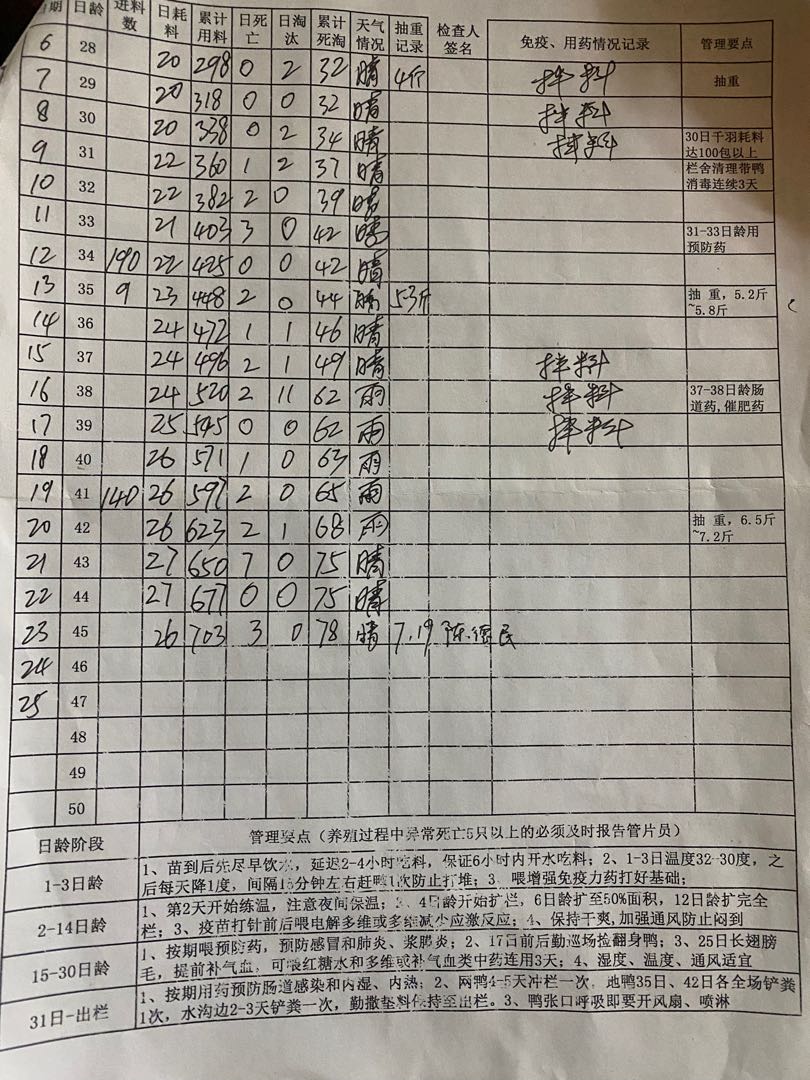 期 日龄 进料数 日耗料 累计用料 日死亡 日淘汰 累计死淘 天气情况 抽重记录 检查人签名 免疫、用药情况记录 管理要点
6 28 20 298 0 2 32 晴 4斤 拌料 抽重
7 29 20 318 0 0 32 晴 拌料
8 30 20 338 0 2 34 晴 拌料 30日千羽耗料达100包以上
9 31 22 360 1 2 37 晴 栏舍清理带鸭消毒连续3天
10 32 22 382 2 0 39 晴
11 33 21 403 3 0 42 晴 31-33日龄用预防药
12 34 190 22 425 0 0 42 晴
13 35 9 23 448 2 0 44 晴 53斤 抽 重，5.2斤~5.8斤
14 36 24 472 1 1 46 晴
15 37 24 496 2 1 49 晴 拌料
16 38 24 520 2 11 62 雨 拌料 37-38日龄肠道药,催肥药
17 39 25 545 0 0 62 雨 拌料
18 40 26 571 1 0 63 雨
19 41 140 26 597 2 0 65 雨
20 42 26 623 2 1 68 雨 抽 重，6.5斤~7.2斤
21 43 27 650 7 0 75 晴
22 44 27 677 0 0 75 晴
23 45 26 703 3 0 78 晴 7.19 陈德民
24 46
25 47
48
49
50
日龄阶段 管理要点（养殖过程中异常死亡5只以上的必须及时报告管片员）
1-3日龄 1、苗到后先尽早饮水，延迟2-4小时吃料，保证6小时内开水吃料；2、1-3日温度32-30度，之
后每天降1度，间隔15分钟左右赶鸭1次防止打堆；3、喂增强免疫力药打好基础；
2-14日龄 1、第2天开始练温，注意夜间保温；2、4日龄开始扩栏，6日龄扩至50%面积，12日龄扩完全
栏；3、疫苗打针前后喂电解多维或多维减少应激反应；4、保持干爽,加强通风防止闷到
15-30日龄 1、按期喂预防药，预防感冒和肺炎、浆膜炎；2、17日前后勤巡场捡翻身鸭；3、25日长翅膀
毛，提前补气血，可喂红糖水和多维或补气血类中药连用3天；4、湿度、温度、通风适宜
31日-出栏 1、按期用药预防肠道感染和内湿、内热；2、网鸭4-5天冲栏一次，地鸭35日、42日各全场铲粪
1次，水沟边2-3天铲粪一次，勤撒垫料保持至出栏。3、鸭张口呼吸即要开风扇、喷淋